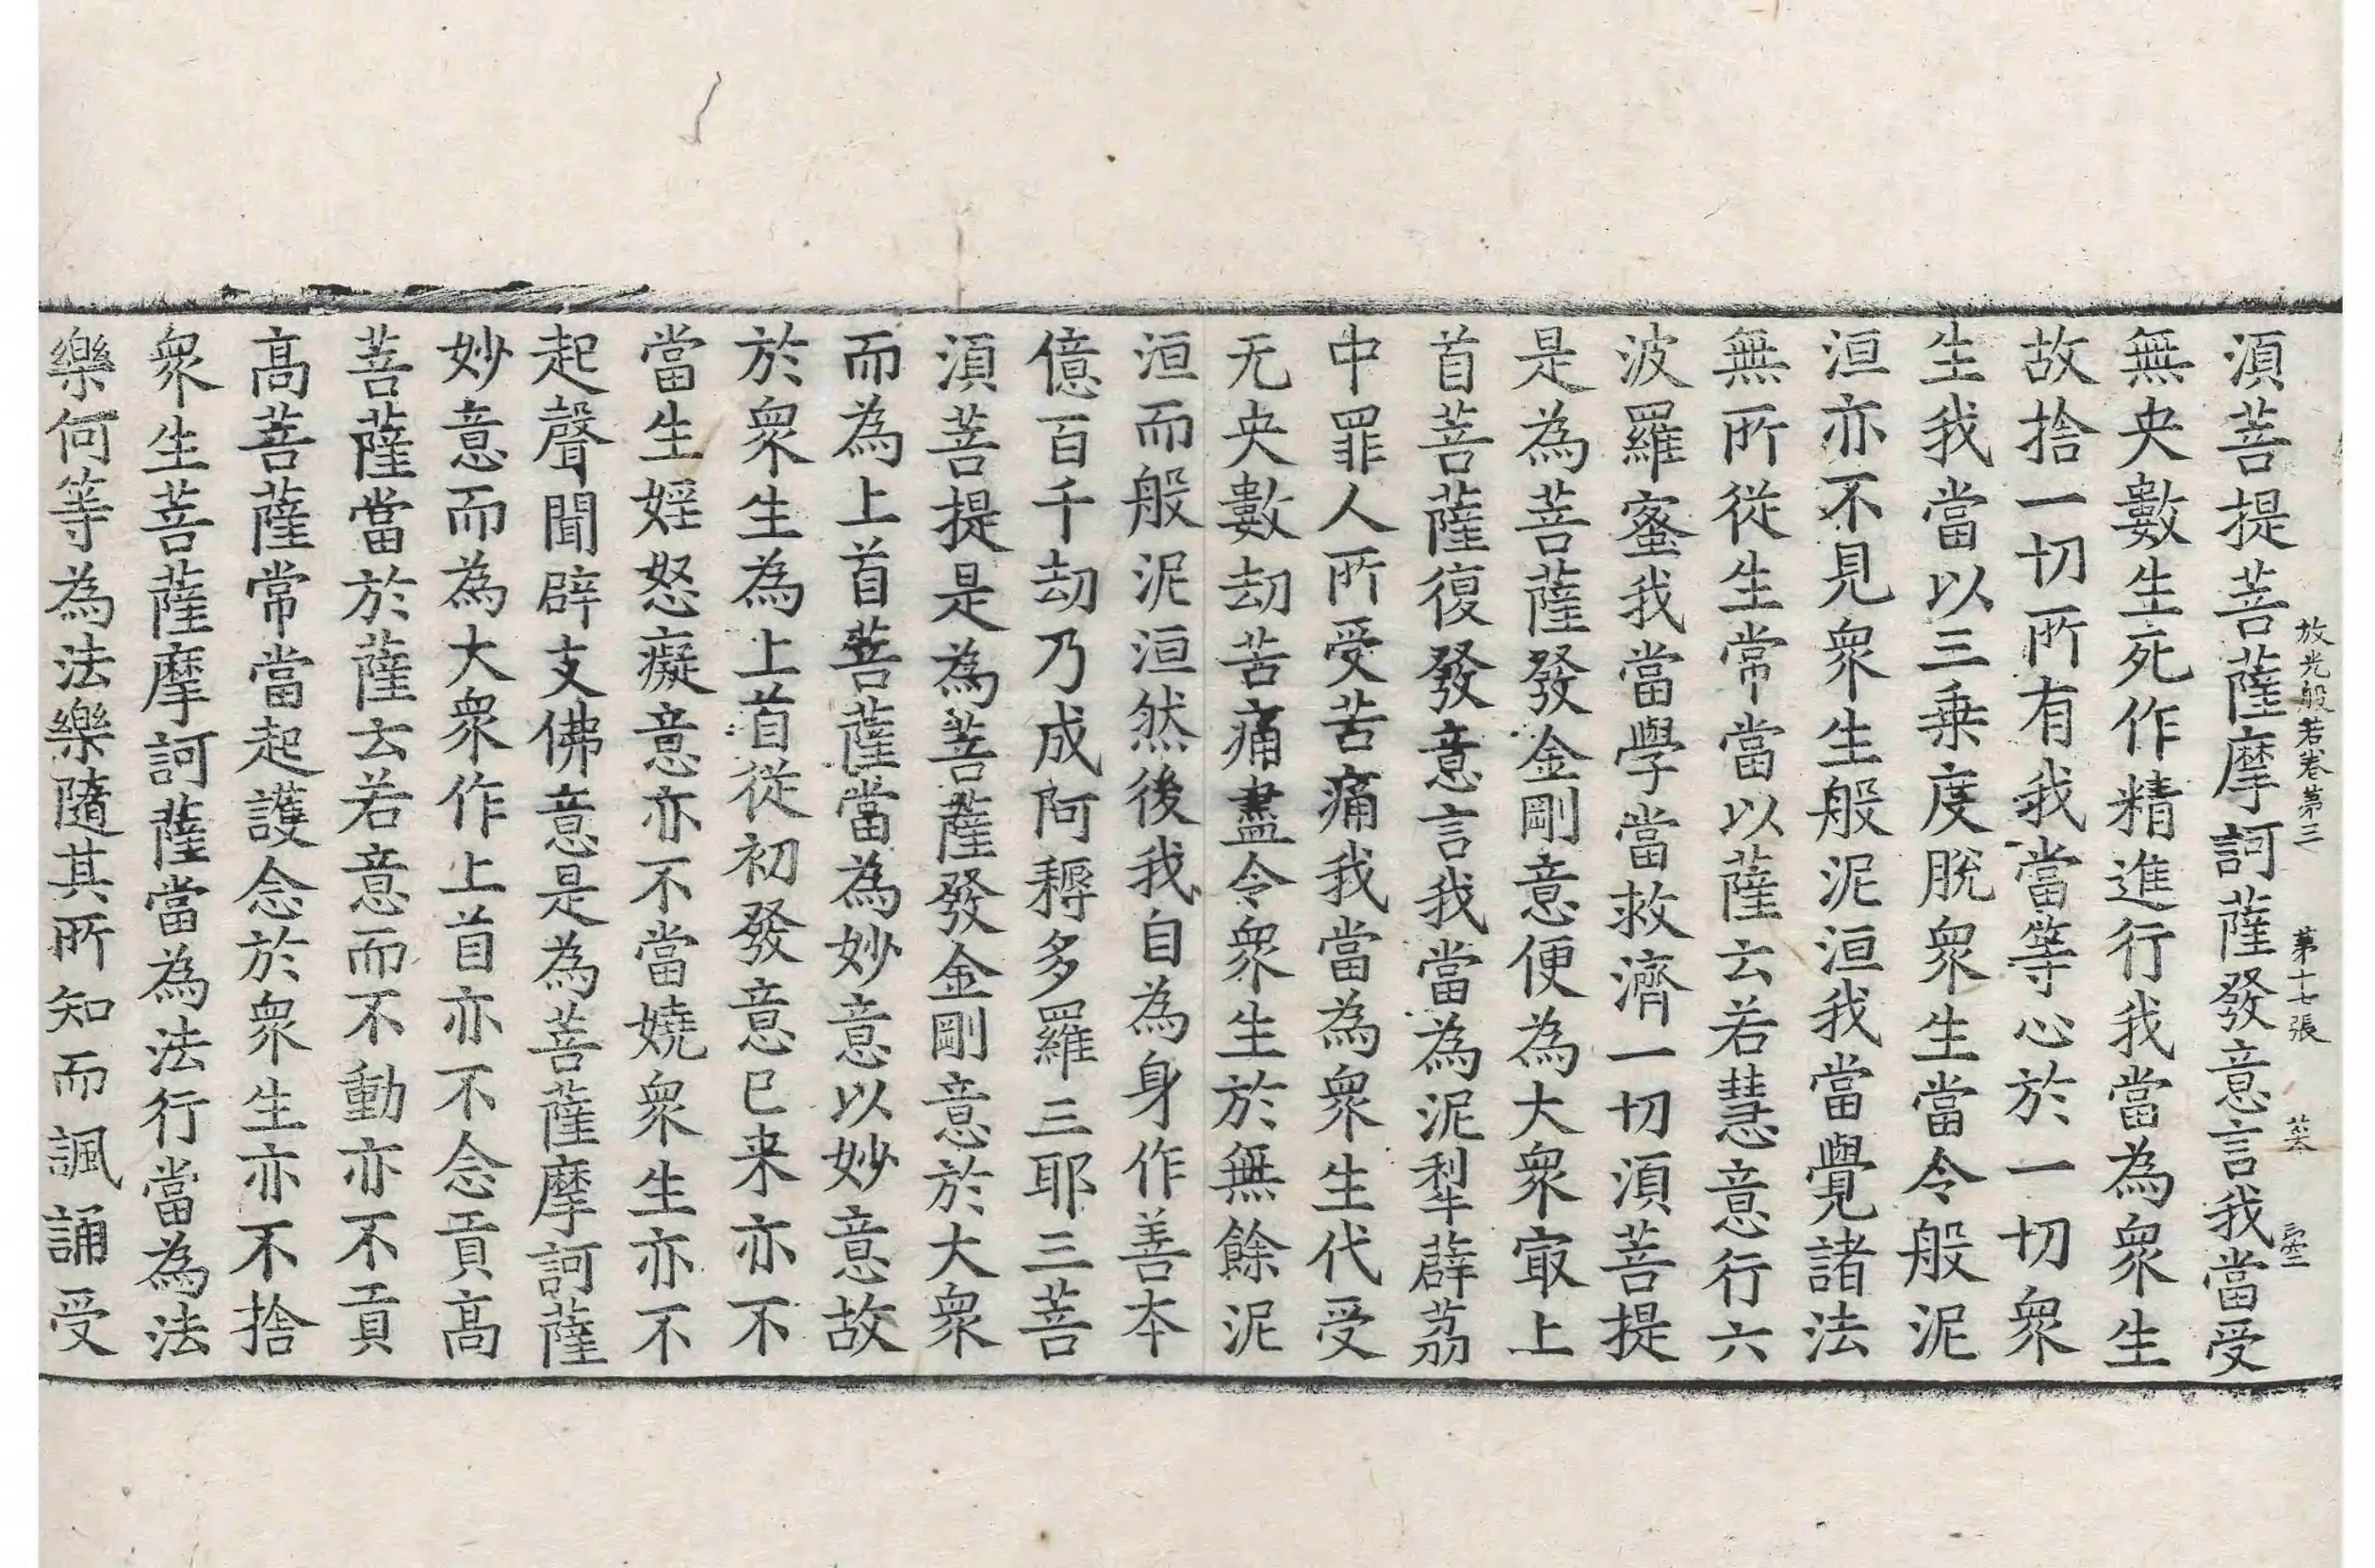 須菩提菩薩摩訶薩發意言我當受
放光般若卷第三　第十七張　菜
無央數生死作精進行我當為衆生
故捨一切所有我當等心於一切衆
生我當以三乗度脫衆生當令般泥
洹亦不見衆生般泥洹我當覺諸法
無所從生常當以薩云若慧意行六
波羅蜜我當學當救濟一切須菩提
是為菩薩發金剛意便為大衆㝡上
首菩薩復發意言我當為泥犁薜荔
中罪人所受苦痛我當為衆生代受
无央數劫苦痛盡令衆生於無餘泥
洹而般泥洹然後我自為身作善本
億百千劫乃成阿耨多羅三耶三菩
須菩提是為菩薩發金剛意於大衆
而為上首菩薩當為妙意以妙意故
於衆生為上首從初發意已来亦不
當生婬怒癡意亦不當嬈衆生亦不
起聲聞辟支佛意是為菩薩摩訶薩
妙意而為大衆作上首亦不念貢高
菩薩當於薩云若意而不動亦不貢
高菩薩常當起護念於衆生亦不捨
衆生菩薩摩訶薩當為法行當為法
樂何等為法樂隨其所知而諷誦受